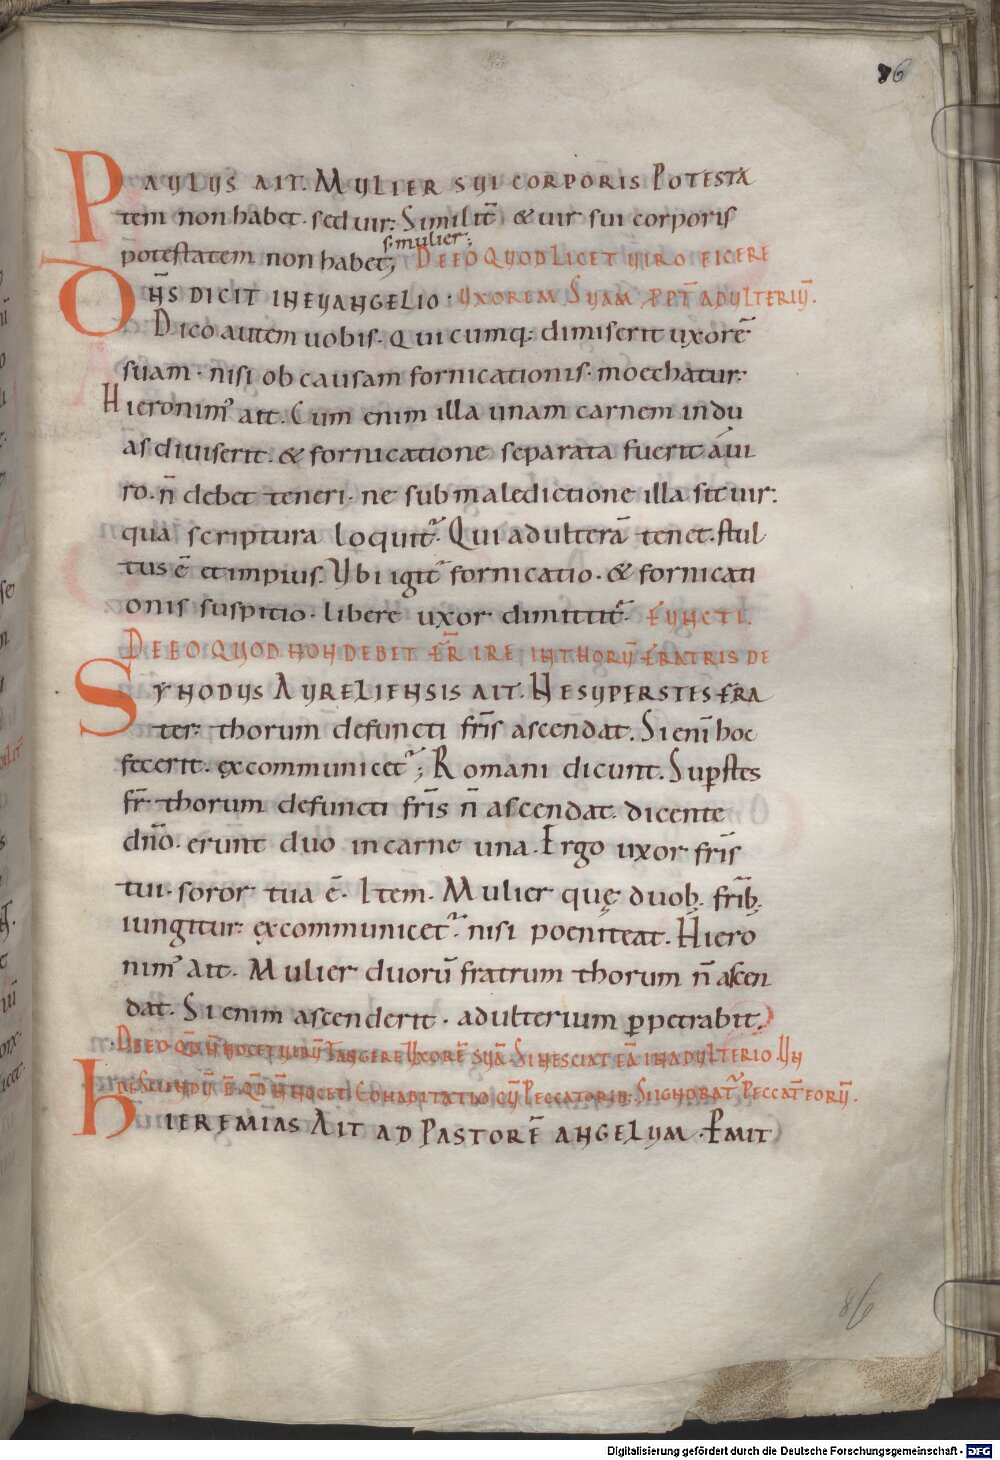 86
PAULUS AIT. MULIER SUI CORPORIS POTESTA
tem non habet. sed uir. Similit̄ & uir sui corporis
s. mulier;
potestatem non habet; DE EO QUOD LICET UIRO EICERE
DN̄S DICIT IN EUANGELIO. UXOREM SUAM PPT̄ ADULTERIŪ.
Dico autem uobis. Qui cumq; dimiserit uxorē
suam. nisi ob causam fornicationis. moechatur.
Hieronim' ait. Cum enim illa unam carnem in du
as diuiserit. & fornicatione separata fuerit a ui
ro. n̄ debet teneri. ne sub maledictione illa sit uir.
qua scriptura loquit̄. Qui adulterā tenet. stul
tus ē et impius. Ubi igit̄ fornicatio. & fornicati
onis suspitio. libere uxor dimittit̄. EUNCTI.
DE EO QUOD NON DEBET FR̄ IRE IN THORŪ FRATRIS DE
SYNODUS AURELIENSIS AIT. NE SUPERSTES FRA
ter thorum defuncti fr̄is ascendat. Si enī hoc
fecerit. excommunicet̄; Romani dicunt. Sup̄stes
fr̄ thorum defuncti fr̄is n̄ ascendat. dicente
dn̄o. erunt duo in carne una. Ergo uxor fr̄is
tui. soror tua ē. Item. Mulier quę duob; fr̄ib;
iungitur excommunicet̄. nisi poeniteat. Hiero
nim' ait. Mulier duorū fratrum thorum n̄ ascen
dat. Si enim ascenderit. adulterium ꝑpetrabit.
DE EO QD̄ N̄ NOCET UIRŪ TANGERE UXORĒ SUĀ. SI NESCIAT EĀ IN ADULTERIO UN
DE SCIENDŪ Ē QD̄ N̄ NOCET COHABITATIO CŪ PECCATORIB; SI IGNORAT̄ PECCAT̄ EORŪ.
HIEREMIAS AIT AD PASTORĒ ANGELUM. EMIT
86
Digitalisierung gefördert durch die Deutsche Forschungsgemeinschaft - DFG